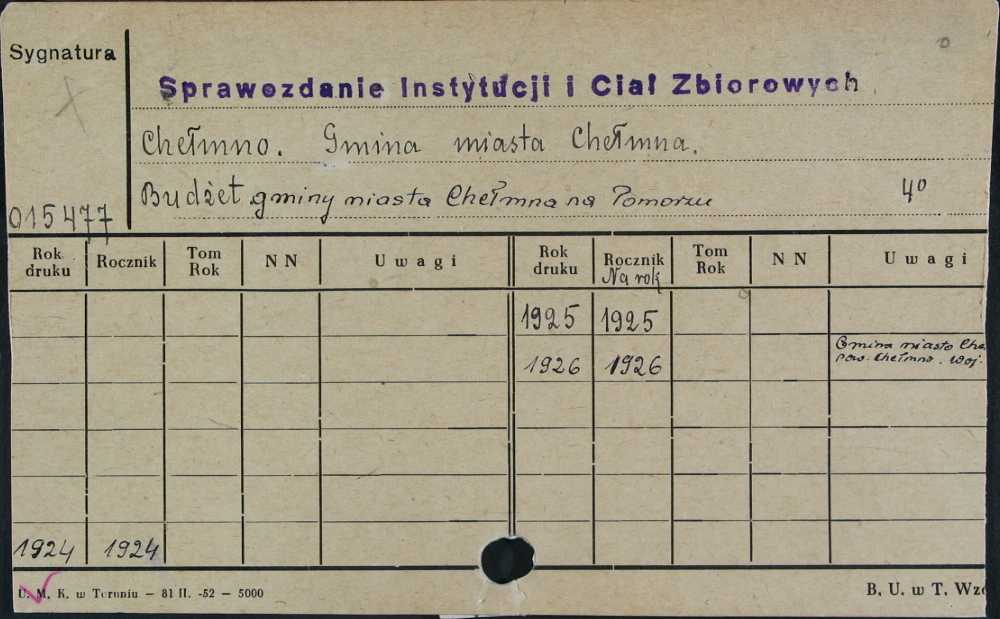 Sygnatura
Sprawozdanie Instytucji i Ciał Zbiorowych
Chełmno. Gmina miasta Chełmna.
Budżet gminy miasta Chełmna na Pomorzu 4º
015477
Rok druku Rocznik Tom Rok NN Uwagi Rok druku Rocznik Na rok Tom Rok NN Uwagi
1925 1925
1926 1926 Gmina miasto Che
pow. Chełmno. Woj.
1924 1924
U. M. K. w Toruniu — 81 II. -52 — 5000 B. U. w T. Wzó